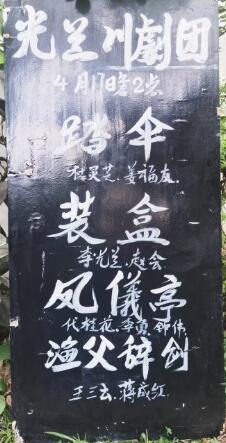 光兰川劇团
4月17日晝2点
踏伞
杜灵芝.姜福友.
装盒
李光兰.赵会.
凤儀亭
代桂花.李勇.邹伟.
渔父辞剑
王三云.蒋成红.